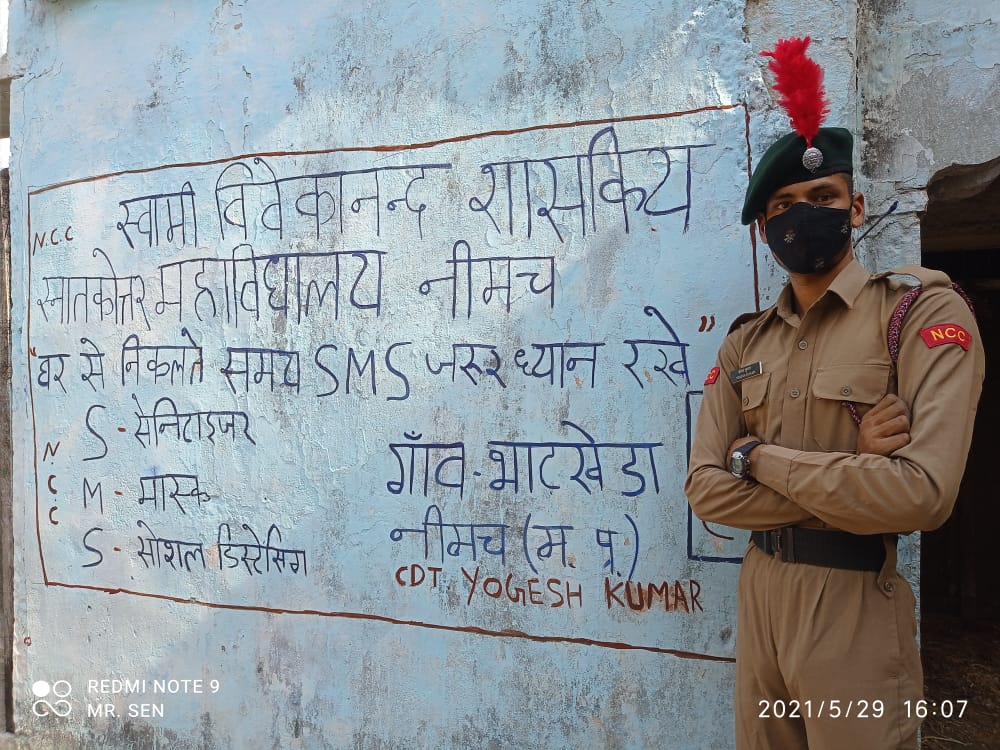 N.C.C
स्वामी विवेकानन्द शासकिय
स्नातकोत्तर महाविद्यालय नीमच
"घर से निकलते समय SMS जरुर ध्यान रखे"
S - सेनिटाइजर
M - मास्क
S - सोशल डिस्टेंसिग
N
C
C
गाँव - भाटखेडा
नीमच (म. प्र.)
CDT. YOGESH KUMAR
NCC
REDMI NOTE 9
MR. SEN
2021/5/29 16:07